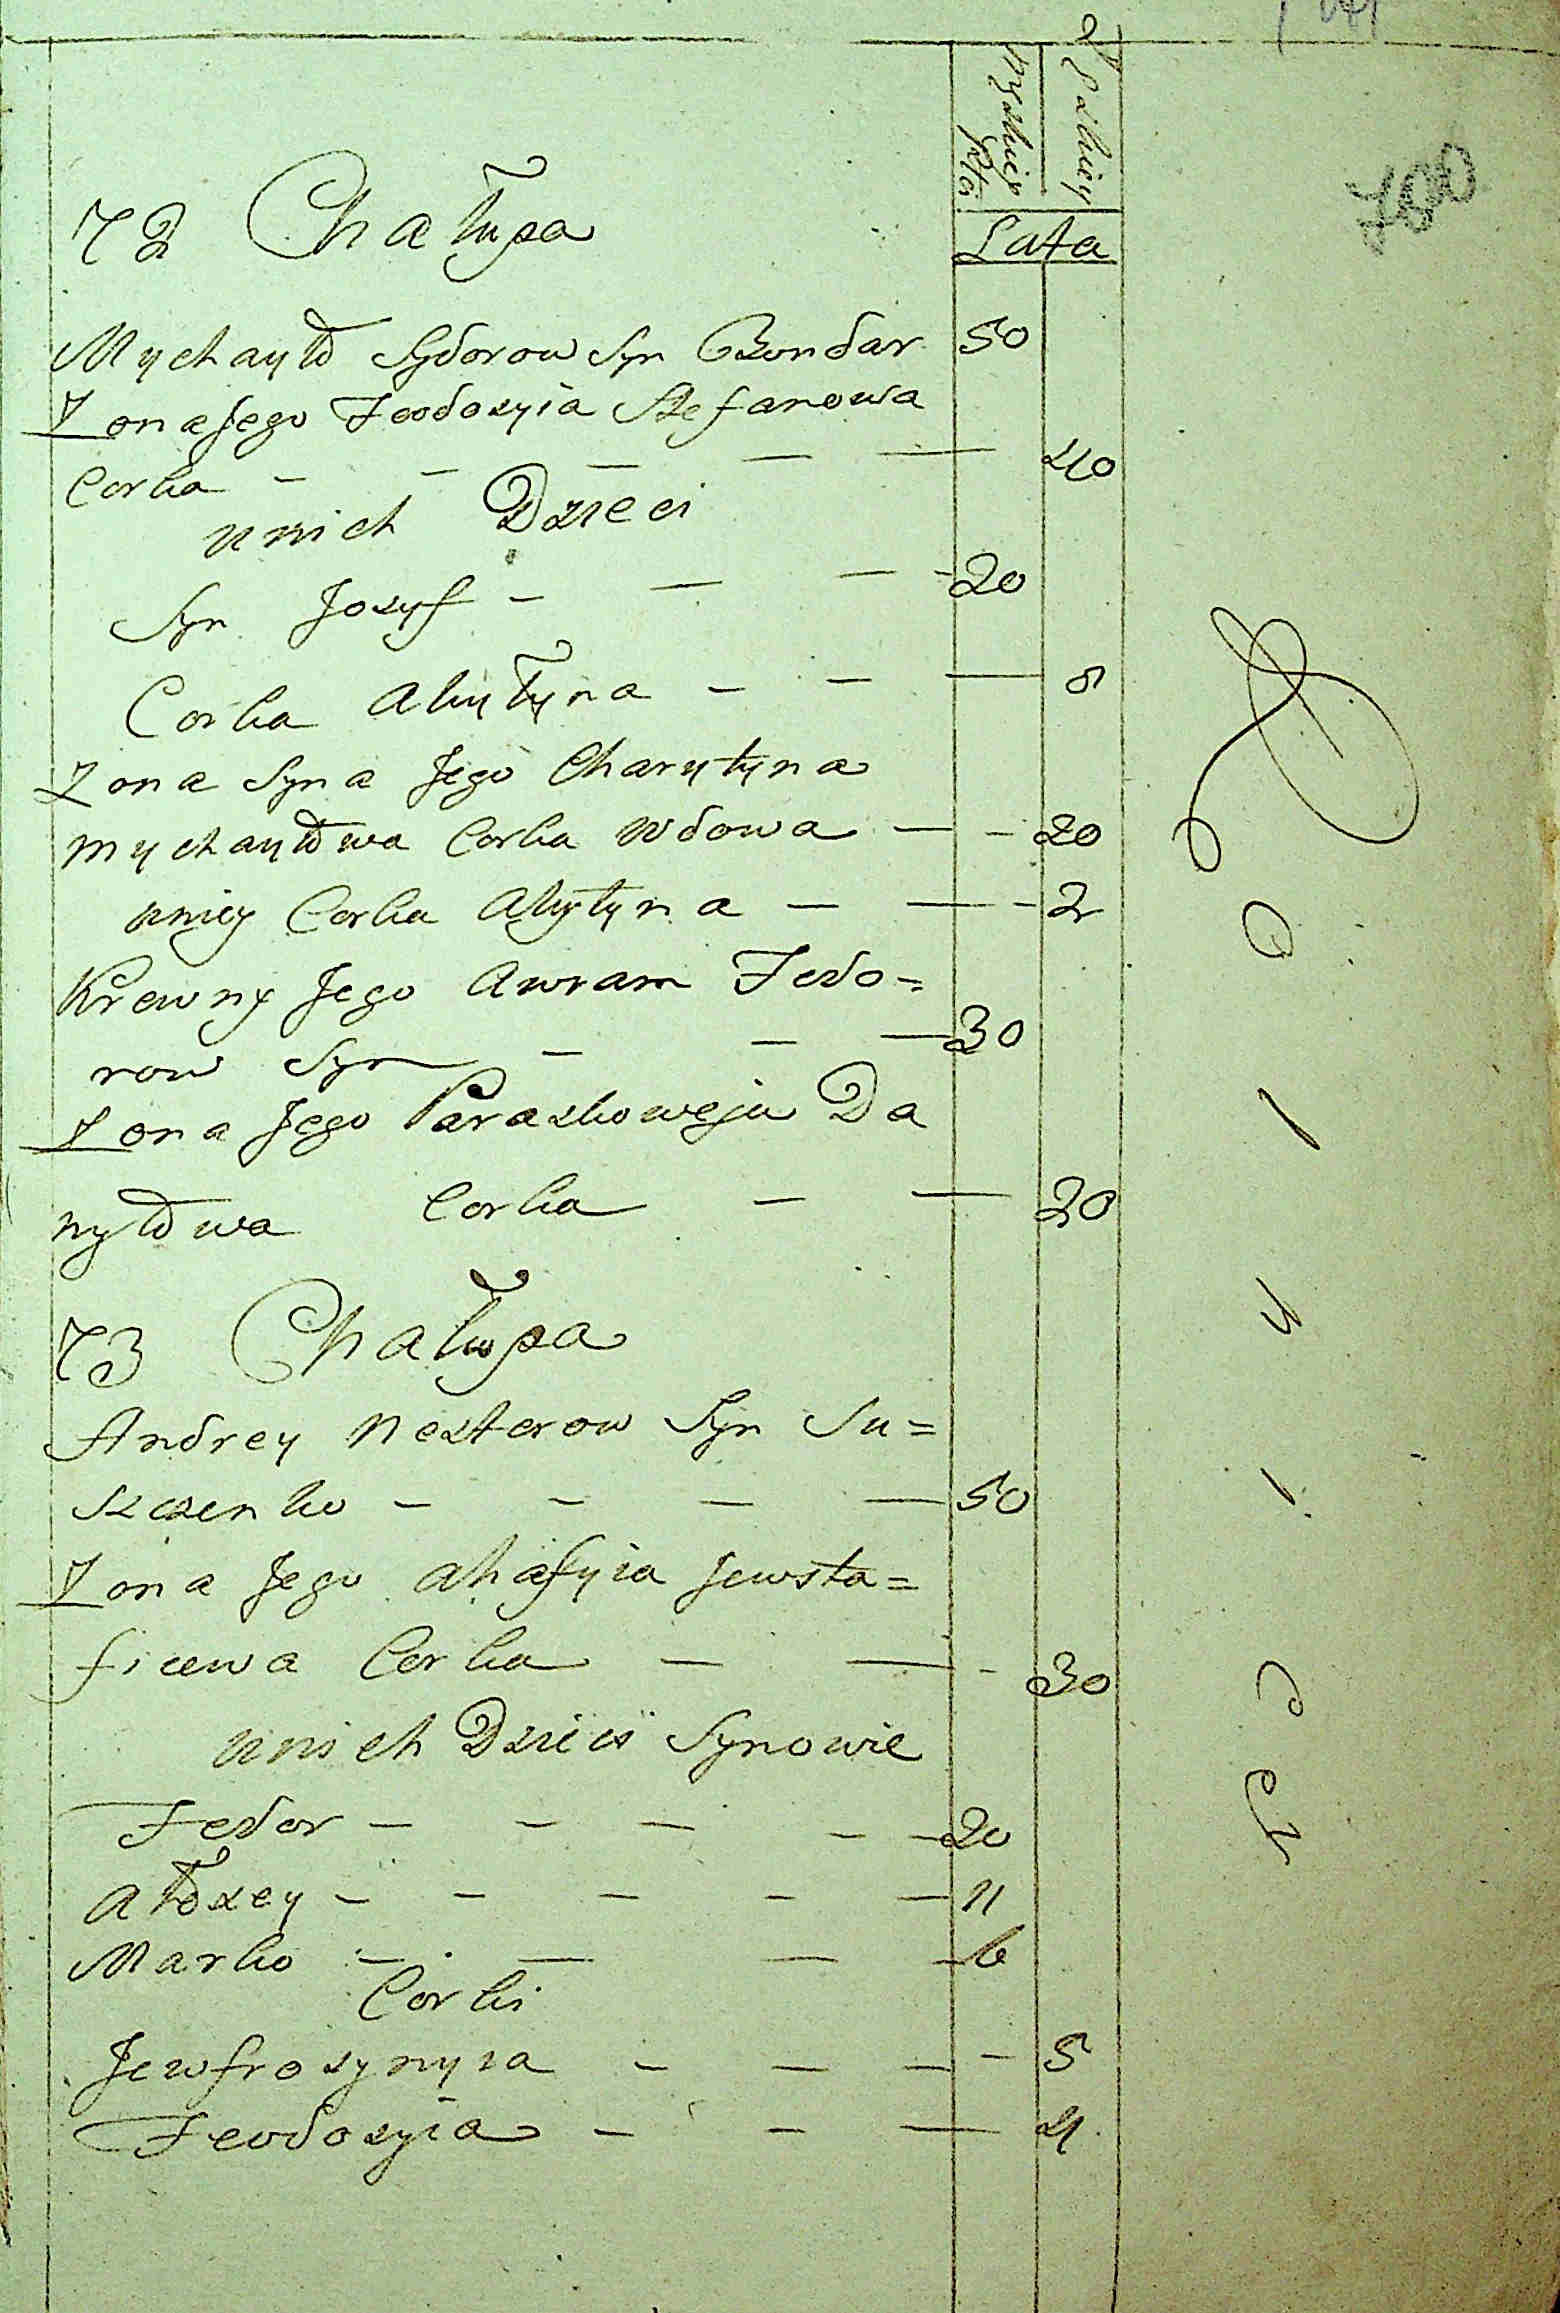 Męzkiey Płci
Żęzkiey
Lata
700
72 Chałupa
Mychayło Sydorow Syn Bondar 50
Żona Jego Feodosyia Stefanowa
Corka - - - - - 40
u nich Dzieci
Syn Josyf - - - - 20
Corka Akułyna - - - 8
Żona Syna Jego Charytyna
Mychayłowa Corka Wdowa - - 20
u niey Corka Akułyna - - - 2
Krewny Jego Awram Fedo=
row Syn - - - 30
Żona Jego Paraskoweja Da
nyłowa Corka - - 20
73 Chałupa
Andrey Nesterow Syn Su=
szczenko - - - - 50
Żona Jego Ahafyia Jewsta=
ficewa Corka - - - 30
u nich Dzieci Synowie
Fedor - - - - - 20
Ałoxey - - - - - 11
Marko - - - - 6
Corki
Jewfrosynyia - - - - 5
Feodosyia - - - 4